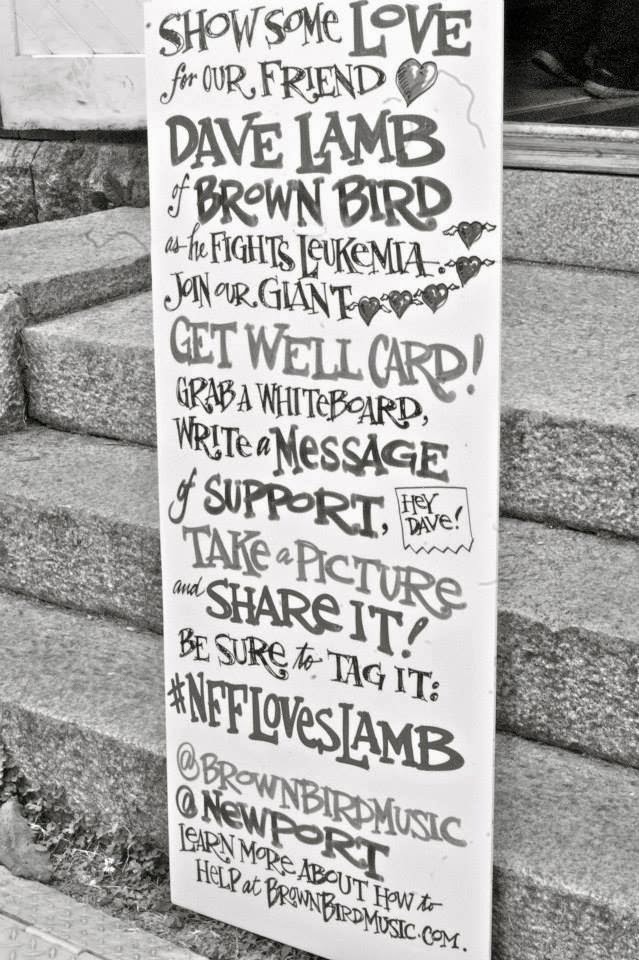 SHOW SOME LOVE
for OUR FRIEND
DAVE LAMB
of BROWN BIRD
as he FIGHTS LEUKEMIA.
JOIN OUR GIANT
GET WELL CARD!
GRAB A WHITEBOARD,
WRITE a MESSAGE
of SUPPORT,
HEY
DAVE!
TAKE a PICTURE
and SHARE IT!
BE SURE to TAG IT:
#NFFLOVESLAMB
@BROWNBIRDMUSIC
@NEWPORT
LEARN MORE ABOUT HOW to
HELP at BROWNBIRDMUSIC.COM.